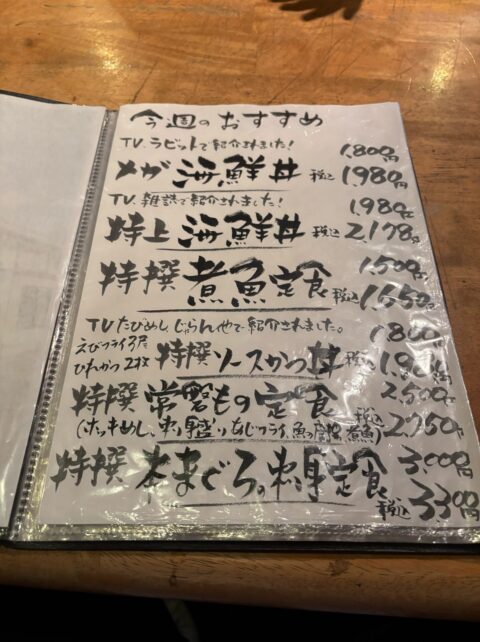 今週のおすすめ
TV. ラビットで紹介されました!
1,800円
メガ 海鮮丼 税込 1,980円
TV. 雑誌で紹介されました!
1,980円
特上 海鮮丼 税込 2,178円
1,500円
特撰 煮魚定食 税込 1,650円
TVたびめし じゃらん他で紹介されました。
1,800円
えびフライ3尾
ひれかつ2枚
特撰 ソースかつ丼 税込
2,500円
特撰 常磐もの定食 税込 2,750円
(ホッキめし、刺し盛り、あじフライ、煮魚)
3,000円
特撰 本まぐろの刺身定食
税込 3,300円